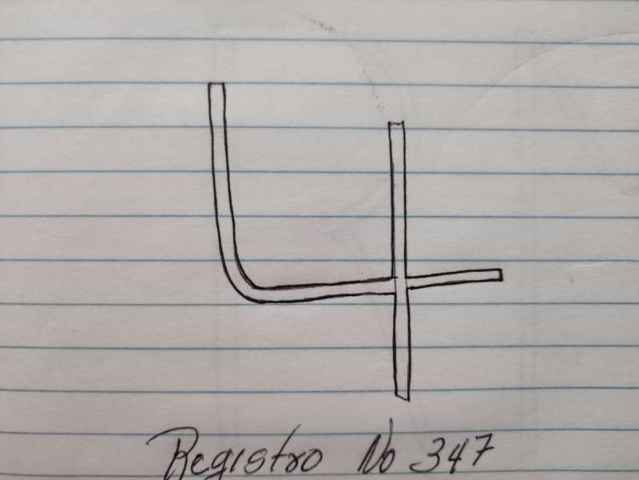 4
Registro No 347